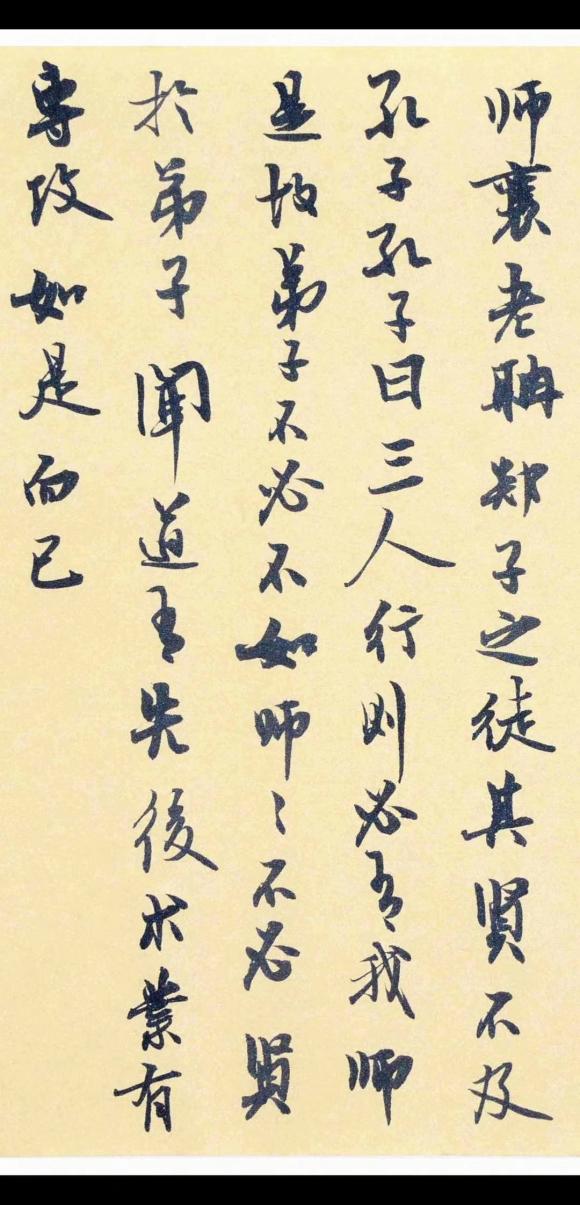 师襄老聃郯子之徒其賢不及
孔子孔子曰三人行则必有我师
是故弟子不必不如师〻不必賢
於弟子聞道有先後术業有
専攻如是而已